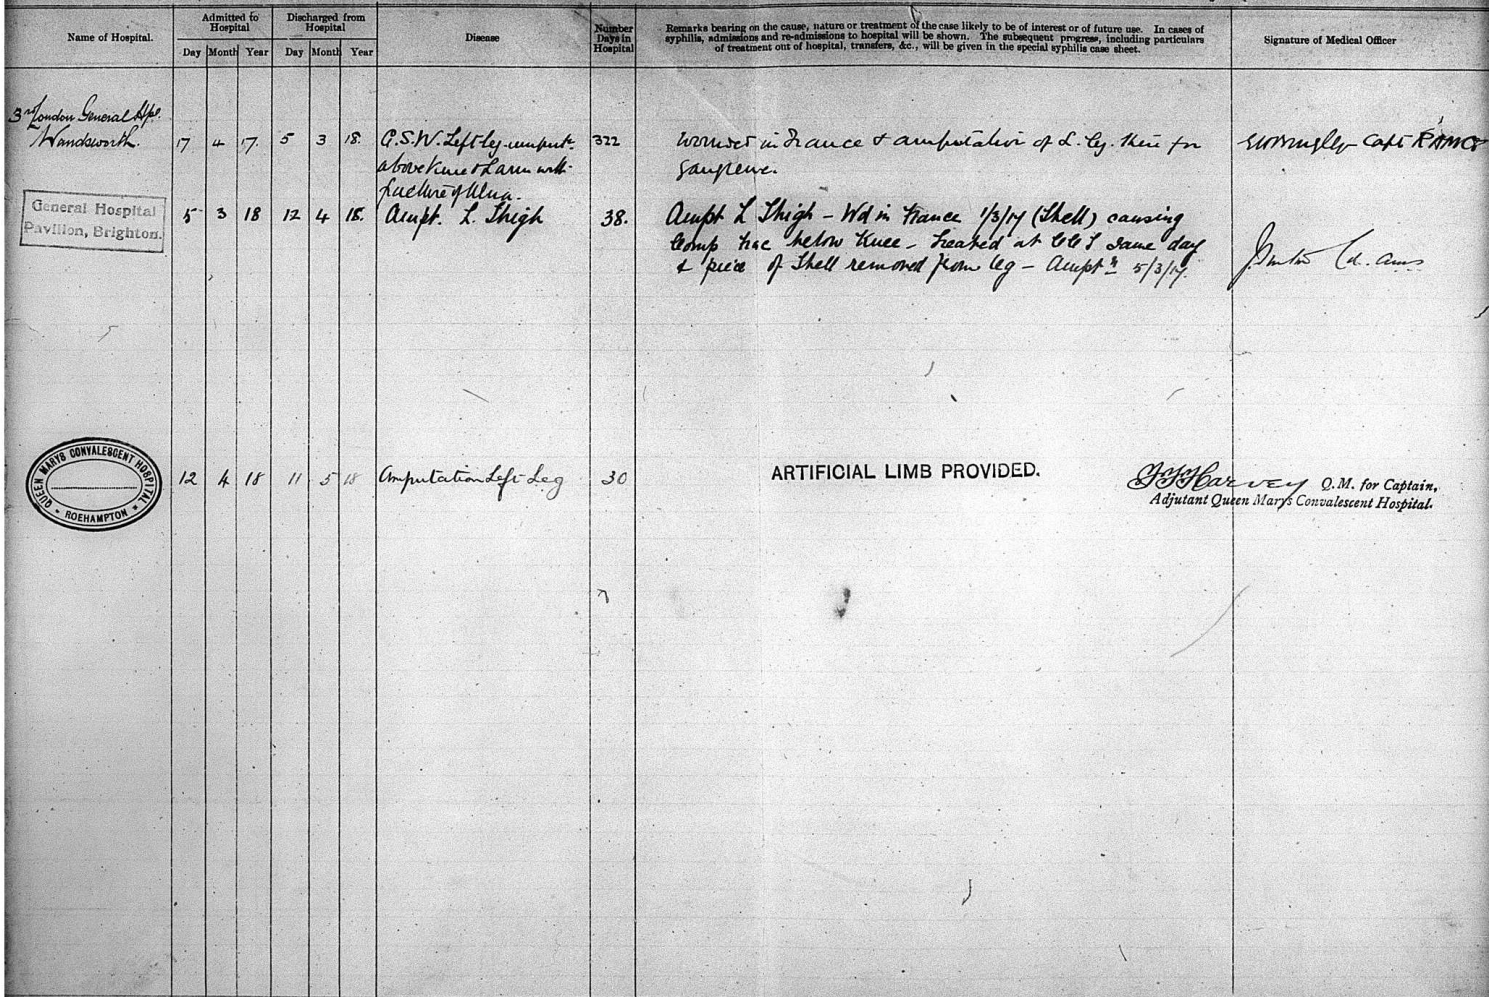 Name of Hospital.
Admitted to Hospital
Discharged from Hospital
Day Month Year Day Month Year
Disease
Number Days in Hospital
Remarks bearing on the cause, nature or treatment of the case likely to be of interest or of future use. In cases of
syphilis, admissions and re-admissions to hospital will be shown. The subsequent progress, including particulars
of treatment out of hospital, transfers, &c., will be given in the special syphilis case sheet.
Signature of Medical Officer
3rd London General Hpl.
Wandsworth. 17 4 17. 5 3 18. G.S.W. Left leg amput. 322 Wounded in France & amputation of L. leg. there for Capt RAMC
above knee & L arm with gangrene.
fracture of Ulna.
General Hospital
Pavilion, Brighton.
5 3 18 12 4 18. Ampt. L Thigh 38. Ampt L Thigh - Wd in France 1/3/17 (Shell) causing
Comp frac below Knee - treated at CCS same day
& piece of Shell removed from leg - Ampt n 5/3/17.
QUEEN MARYS CONVALESCENT HOSPITAL
ROEHAMPTON
12 4 18 11 5 18 Amputation Left Leg 30 ARTIFICIAL LIMB PROVIDED. Harvey Q.M. for Captain,
Adjutant Queen Marys Convalescent Hospital.